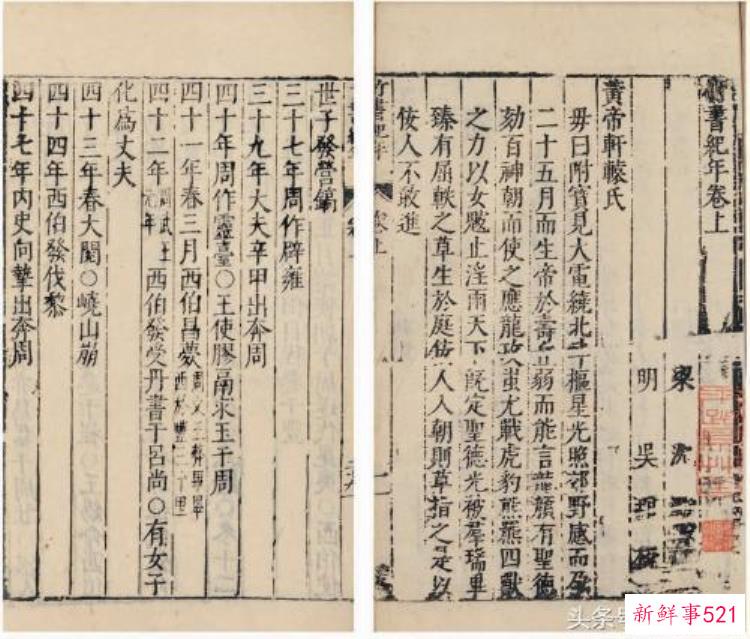 竹書紀年卷上
梁 沈
明 吳
黃帝軒轅氏
母曰附寶見大電繞北斗樞星光照郊野感而孕
二十五月而生帝於壽丘弱而能言龍顏有聖德
劾百神朝而使之應龍攻蚩尤戰虎豹熊羆四獸
之力以女魃止淫雨天下既定聖德光被羣瑞畢
臻有屈軼之草生於庭佞人入朝則草指之是以
佞人不敢進
竹書紀年 卷上 一
世子發營鎬
三十七年周作辟雍
三十九年大夫辛甲出奔周
四十年周作靈臺○王使膠鬲求玉于周
四十一年春三月西伯昌薨周文王葬畢畢西於豐三十里
四十二年周武王元年西伯發受丹書于呂尚○有女子
化為丈夫
四十三年春大閱○嶢山崩
四十四年西伯發伐黎
四十七年內史向摯出奔周
头条
新鲜事521